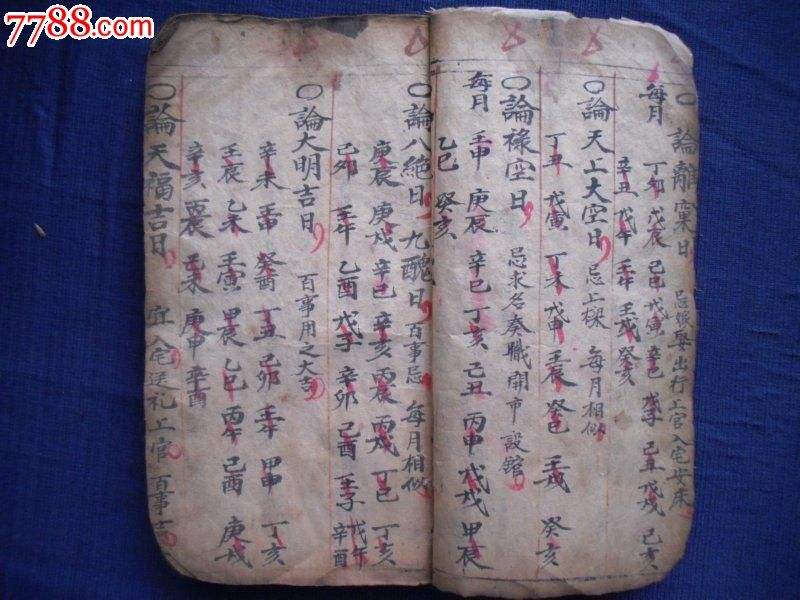 7788.com
論離窠日 忌嫁娶出行上官入宅安床
每月 丁卯 戊辰 己巳 戊寅 辛巳 戊子 己丑 戊戌 己亥
辛丑 戊午 壬午 壬戌 癸亥
論天上大空日 忌上樑 每月相似
丁丑 戊寅 丁未 戊申 壬辰 癸巳 壬戌 癸亥
論祿空日 忌求名奏職開市設舘
每月 壬申 庚辰 辛巳 丁亥 己丑 丙申 戊戌 甲辰
乙巳 癸亥
論八絕日 九醜日 百事忌 每月相似
庚辰 庚戌 辛巳 辛亥 丙辰 丙戌 丁巳 丁亥
己夘 壬午 乙酉 戊子 辛卯 己酉 壬子 戊午 辛酉
論大明吉日 百事用之大吉
辛未 壬申 癸酉 丁丑 己卯 壬午 甲申 丁亥
壬辰 乙未 壬寅 甲辰 乙巳 丙午 己酉 庚戌
辛亥 丙辰 己未 庚申 辛酉
論天福吉日 宜入宅送礼上官 百事吉